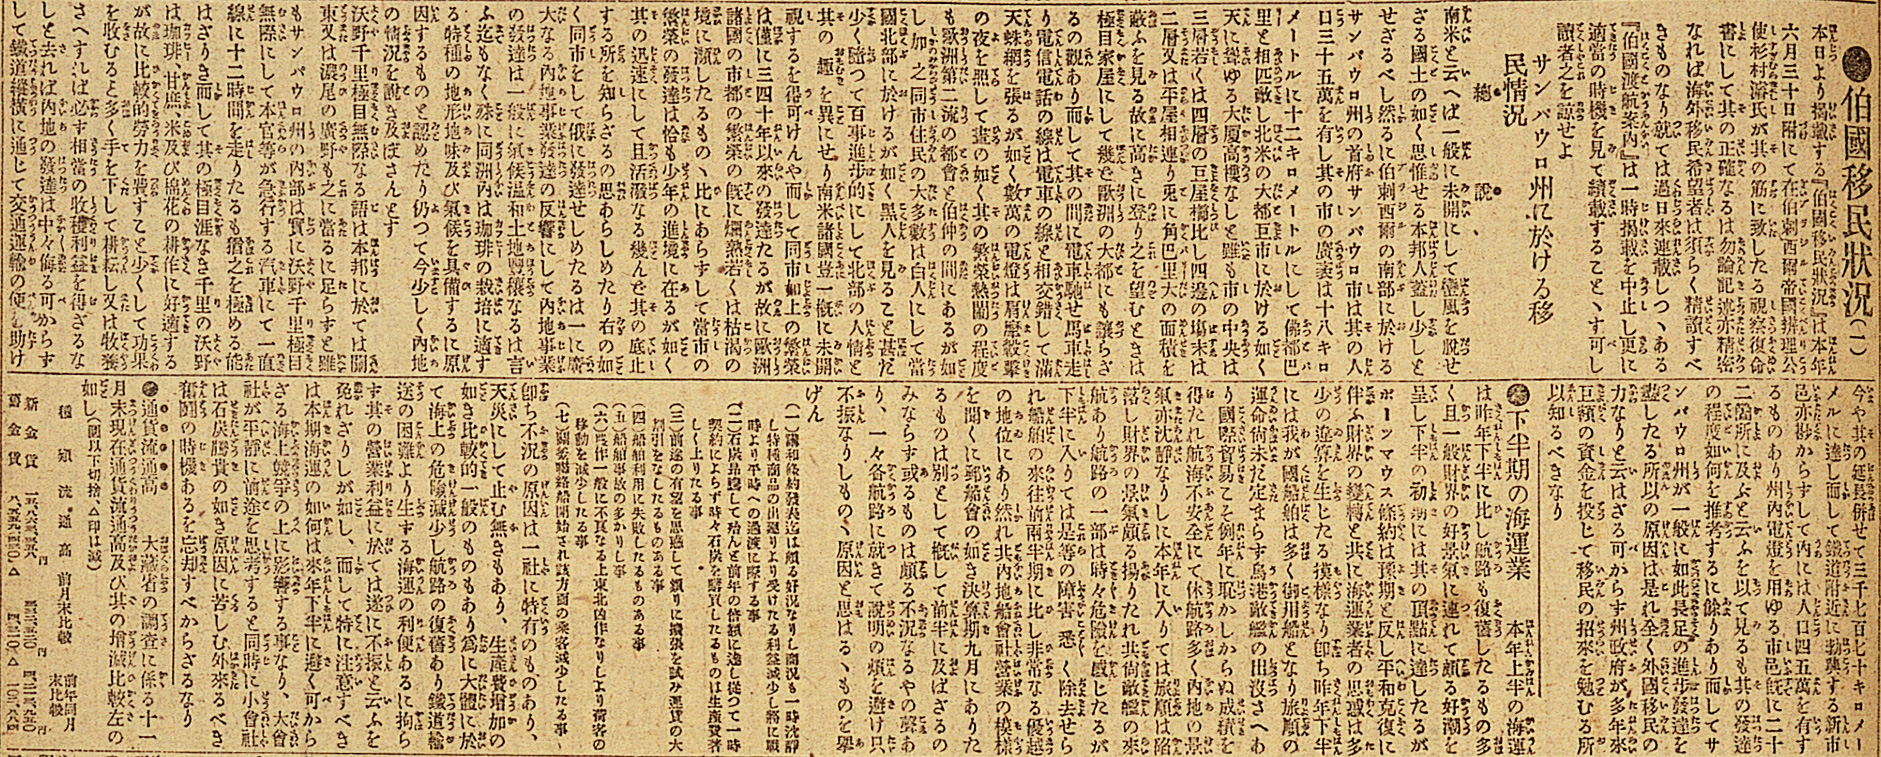 ●伯國移民狀況(一)
本日より掲載する『伯國移民狀況』は本年
六月三十日附にて在伯剌西爾帝國辨理公
使杉村濬氏が其の筋に致したる視察復命
書にして其の正確なるは勿論記述亦精密
なれば海外移民希望者は須らく精讀すべ
きものなり就ては過日來連載しつゝある
『伯國渡航案内』は一時掲載を中止し更に
適當の時機を見て續載することゝす可し
讀者之を諒せよ
サンパウロ州に於ける移
民情況
總說
南米と云へば一般に未開にして蠻風を脱せ
ざる國土の如く思惟せる本邦人蓋し少しと
せざるべし然るに伯剌西爾の南部に於ける
サンパウロ州の首府サンパウロ市は其の人
口三十五萬を有し其の市の廣袤は十八キロ
メートルに十二キロメートルにして佛都巴
里と相匹敵し北米の大都巨市に於ける如く
天に聳ゆる大厦高樓なしと雖も市の中央は
三層若くは四層の巨屋櫛比し四邊の塲末は
二層又は平屋相連り兎に角巴里大の面積を
敵ふを見る故に高きに登り之を望むときは
極目家屋にして幾ど歐洲の大都にも讓らざ
るの觀あり而して其の間に電車馳せ馬車走
り電信電話の線は電車の線と相交錯して滿
天蛛網を張るが如く數萬の電燈は肩摩轂擊
の夜を照して晝の如く其の繁榮熱鬧の程度
も歐洲第二流の都會と伯仲の間にあるが如
し加之同市住民の大多數は白人にして當
國北部に於けるが如く黑人を見ること甚だ
少く隨つて百事進步的にして北部の人情と
其の趣を異にせり南米諸國豈一概に未開
視するを得可けんや而して同市如上の繁榮
は僅に三四十年以來の發達たるが故に歐洲
諸國の市都の繁榮の既に爛熟若くは枯渇の
境に瀕したるものゝ比にあらずして當市の
繁榮の發達は恰も少年の進境に在るが如く
其の迅速にして且活潑なる幾んど其の底止
する所を知らざるの思あらしめたり右の如
く同市をして俄に發達せしめたるは一に廣
大なる內地事業發達の反響にして內地事業
の發達は一般に氣候温和土地豐穰なるは言
ふ迄もなく殊に同洲內は珈琲の栽培に適す
る特種の地形地味及び氣候を具備するに原
因するものと認めたり仍つて今少しく內地
の情況を說き及ぼさんとす
沃野千里極目無際なる語は本邦に於ては關
東又は濃尾の廣野も之に當るに足らずと雖
もサンパウロ州の內部は實に沃野千里極目
無際にして本官等が急行する汽車にて一直
線に十二時間を走りたるも猶之を極める能
はざりき而して其の極目涯なき千里の沃野
は珈琲、甘庶、米及び協花の耕作に好適する
が故に比較的勞力を費すこと少くして功果
を收むると多く手を下して耕耘し又は牧養
さへすれば必ず相當の收穫利益を得ざるな
しと去れば內地の發達は中々侮る可からず
して鐵道縱橫に通じて交通運輸の便を助け
今や其の延長併せて三千七百七十キロメー
メルに達し而して鐵道附近に勃興する新市
邑亦尠からずして內には人口四五萬を有す
るものあり州內電燈を用ゆる市邑既に二十
二箇所に及ぶと云ふを以て見るも其の發達
の程度如何を推考するに餘りあり而してサ
ンパウロ州が一般に如此長足の進步發達を
盡したる所以の原因は是れ全く外國移民の
力なりと云はざる可からず州政府が多年來
巨額の資金を投じて移民の招來を勉むる所
以知るべきなり
●下半期の海運業　本年上半の海運
は昨年下半に比し航路も復舊したるもの多
く且一般財界の好景氣に連れて頗る好潮を
呈し下半の初期には其の頂點に達したるが
ポーツマウス條約は豫期と反し平和克復に
伴ふ財界の變轉と共に海運業者の思惑は多
少の違算を生じたる摸樣なり卽ち昨年下半
には我が國船舶は多く御用船となり旅順の
運命尚未だ定まらず烏港敵艦の出沒さへあ
り國際貿易こそ例年に恥かしからぬ成績を
得たれ航海不安全にて休航路多く內地の景
氣亦沈靜なりしに本年に入りては旅順は陷
落し財界の景氣頗る揚りたれ共尚敵艦の來
航あり航路の一部は時々危險を感じたるが
下半に入りては是等の障害悉く除去せら
れ船舶の來往前南半期に比し非常なる優越
の地位にあり然れ共內地船會社營業の模樣
を聞くに郵船會の如き決算期九月にありた
るものは別として概して前半に及ばざるの
みならず或るものは頗る不況なるやの聲あ
り、一々各航路に就きて說明の煩を避け只
不振なりしものゝ原因と思はるゝものを擧
げん
(一)講和條約發表迄は頗る好況なりし商況も一時沈靜
し特種商品の出廻りより受けたる利益減少し將に戰
時より平時への過渡に際する事
(二)石炭昂騰して殆んど前年の倍額に達し從つて一時
契約によらず時々石炭を購買したるものは生產費著
しく上りたる事
(三)前途の有望を思惑して頻りに擴張を試み運賃の大
割引をなしたるものある事
(四)船舶利用に失敗したるものある事
(五)船舶事故の多かりし事
(六)農作一般に不良なる上東北凶作なりしより荷客の
移動を減少したる事
(七)關釜聯絡船開始され該方面の乘客減少したる事
卽ち不況の原因は一社に特有のものあり、
天災にして止む無きもあり、生產費增加の
如き比較的一般のものもあり爲に大體に於
て海上の危險減少し航路の復舊あり鐵道輸
送の困難より生ずる海運の利便あるに拘ら
ず其の營業利益に於ては遂に不振と云ふを
免れざりしが如し、而して特に注意すべき
は本期海運の如何は來年下半に避く可から
ざる海上競爭の上に影響する事なり、大會
社が平靜に前途を思考すると同時に小會社
は石炭騰貴の如き原因に苦しむ外來るべき
奮鬪の時機あるを忘却すべからざるなり
●通貨流通高　大藏省の調査に係る十一
月末現在通貨流通高及び其の增減比較左の
如し(圓以下切捨△印は減)
種類　流通高　前月末比較　前年同月末比較
新金貨
舊金貨